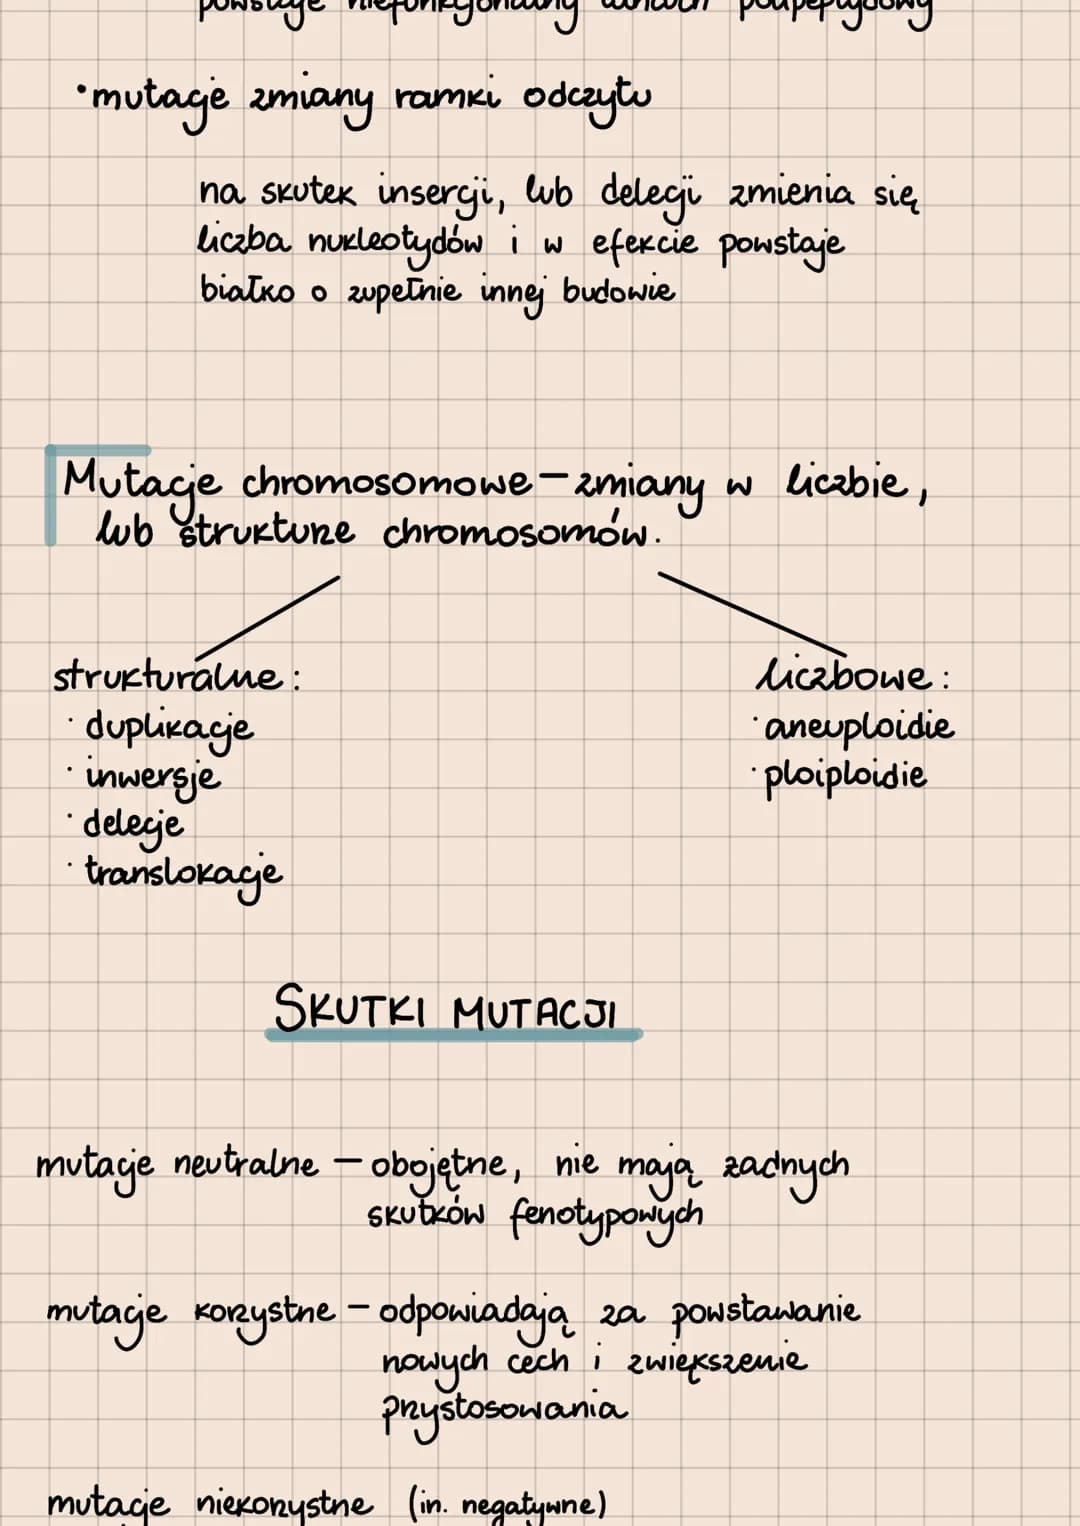 powstaje niefunkcjonalny łańcuch polipeptydowy
• mutacje zmiany ramki odczytu
na skutek insercji, lub delecji zmienia się
liczba nukleotydów i w efekcie powstaje
białko o zupełnie innej budowie
Mutacje chromosomowe – zmiany w liczbie,
lub strukturze chromosomów.
strukturalne:
· duplikacje
· inwersje
· delecje
· translokacje
liczbowe:
· aneuploidie
· ploiploidie
SKUTKI MUTACJI
mutacje neutralne – obojętne, nie mają żadnych
skutków fenotypowych
mutacje korzystne – odpowiadają za powstawanie
nowych cech i zwiększenie
przystosowania
mutacje niekorzystne (in. negatywne)